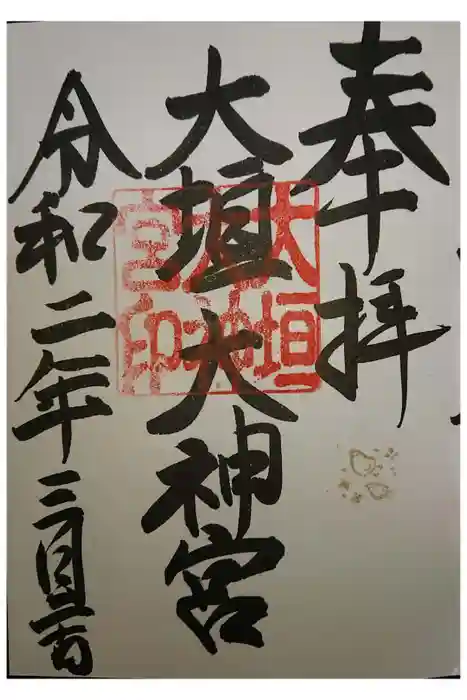 奉拝
大垣大神宮
令和二年三月
大垣
大神
宮印